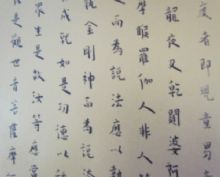 度者即現童男
龍夜叉乾闥婆阿
摩睺羅伽人非人
而為說法應以執
金剛神而為說法
成就如是功德以種
眾生是故汝等應當
是觀世音菩薩摩訶